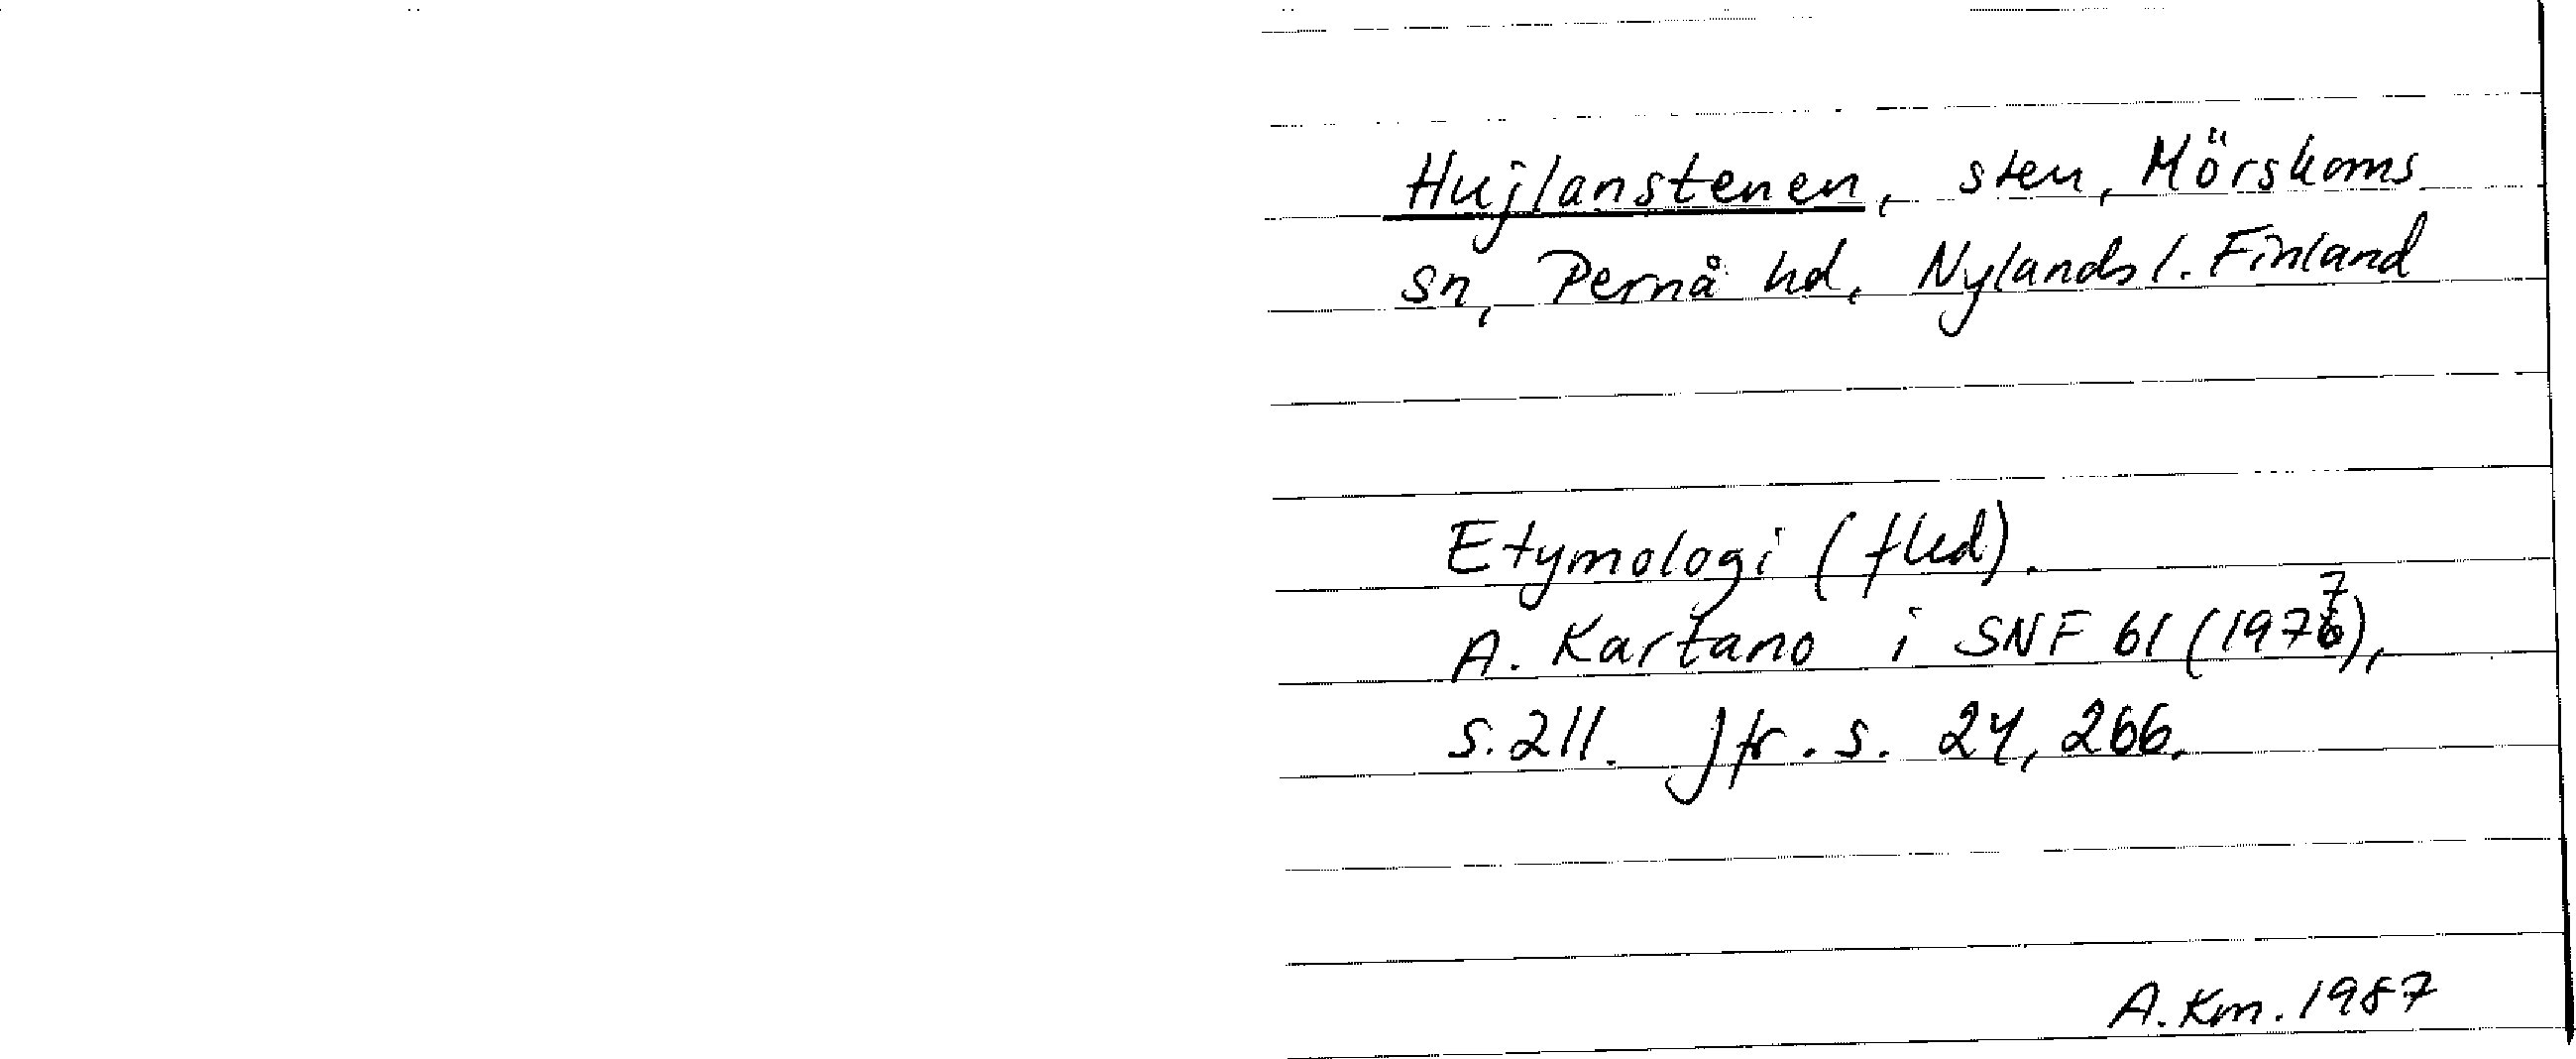 Hujlanstenen, sten, Mörskoms
sn, Pernå hd, Nylands l. Finland
Etymologi (fled).
A. Kartano i SNF 61 (1977),
s. 211. Jfr. s. 24, 266.
A. Km. 1987